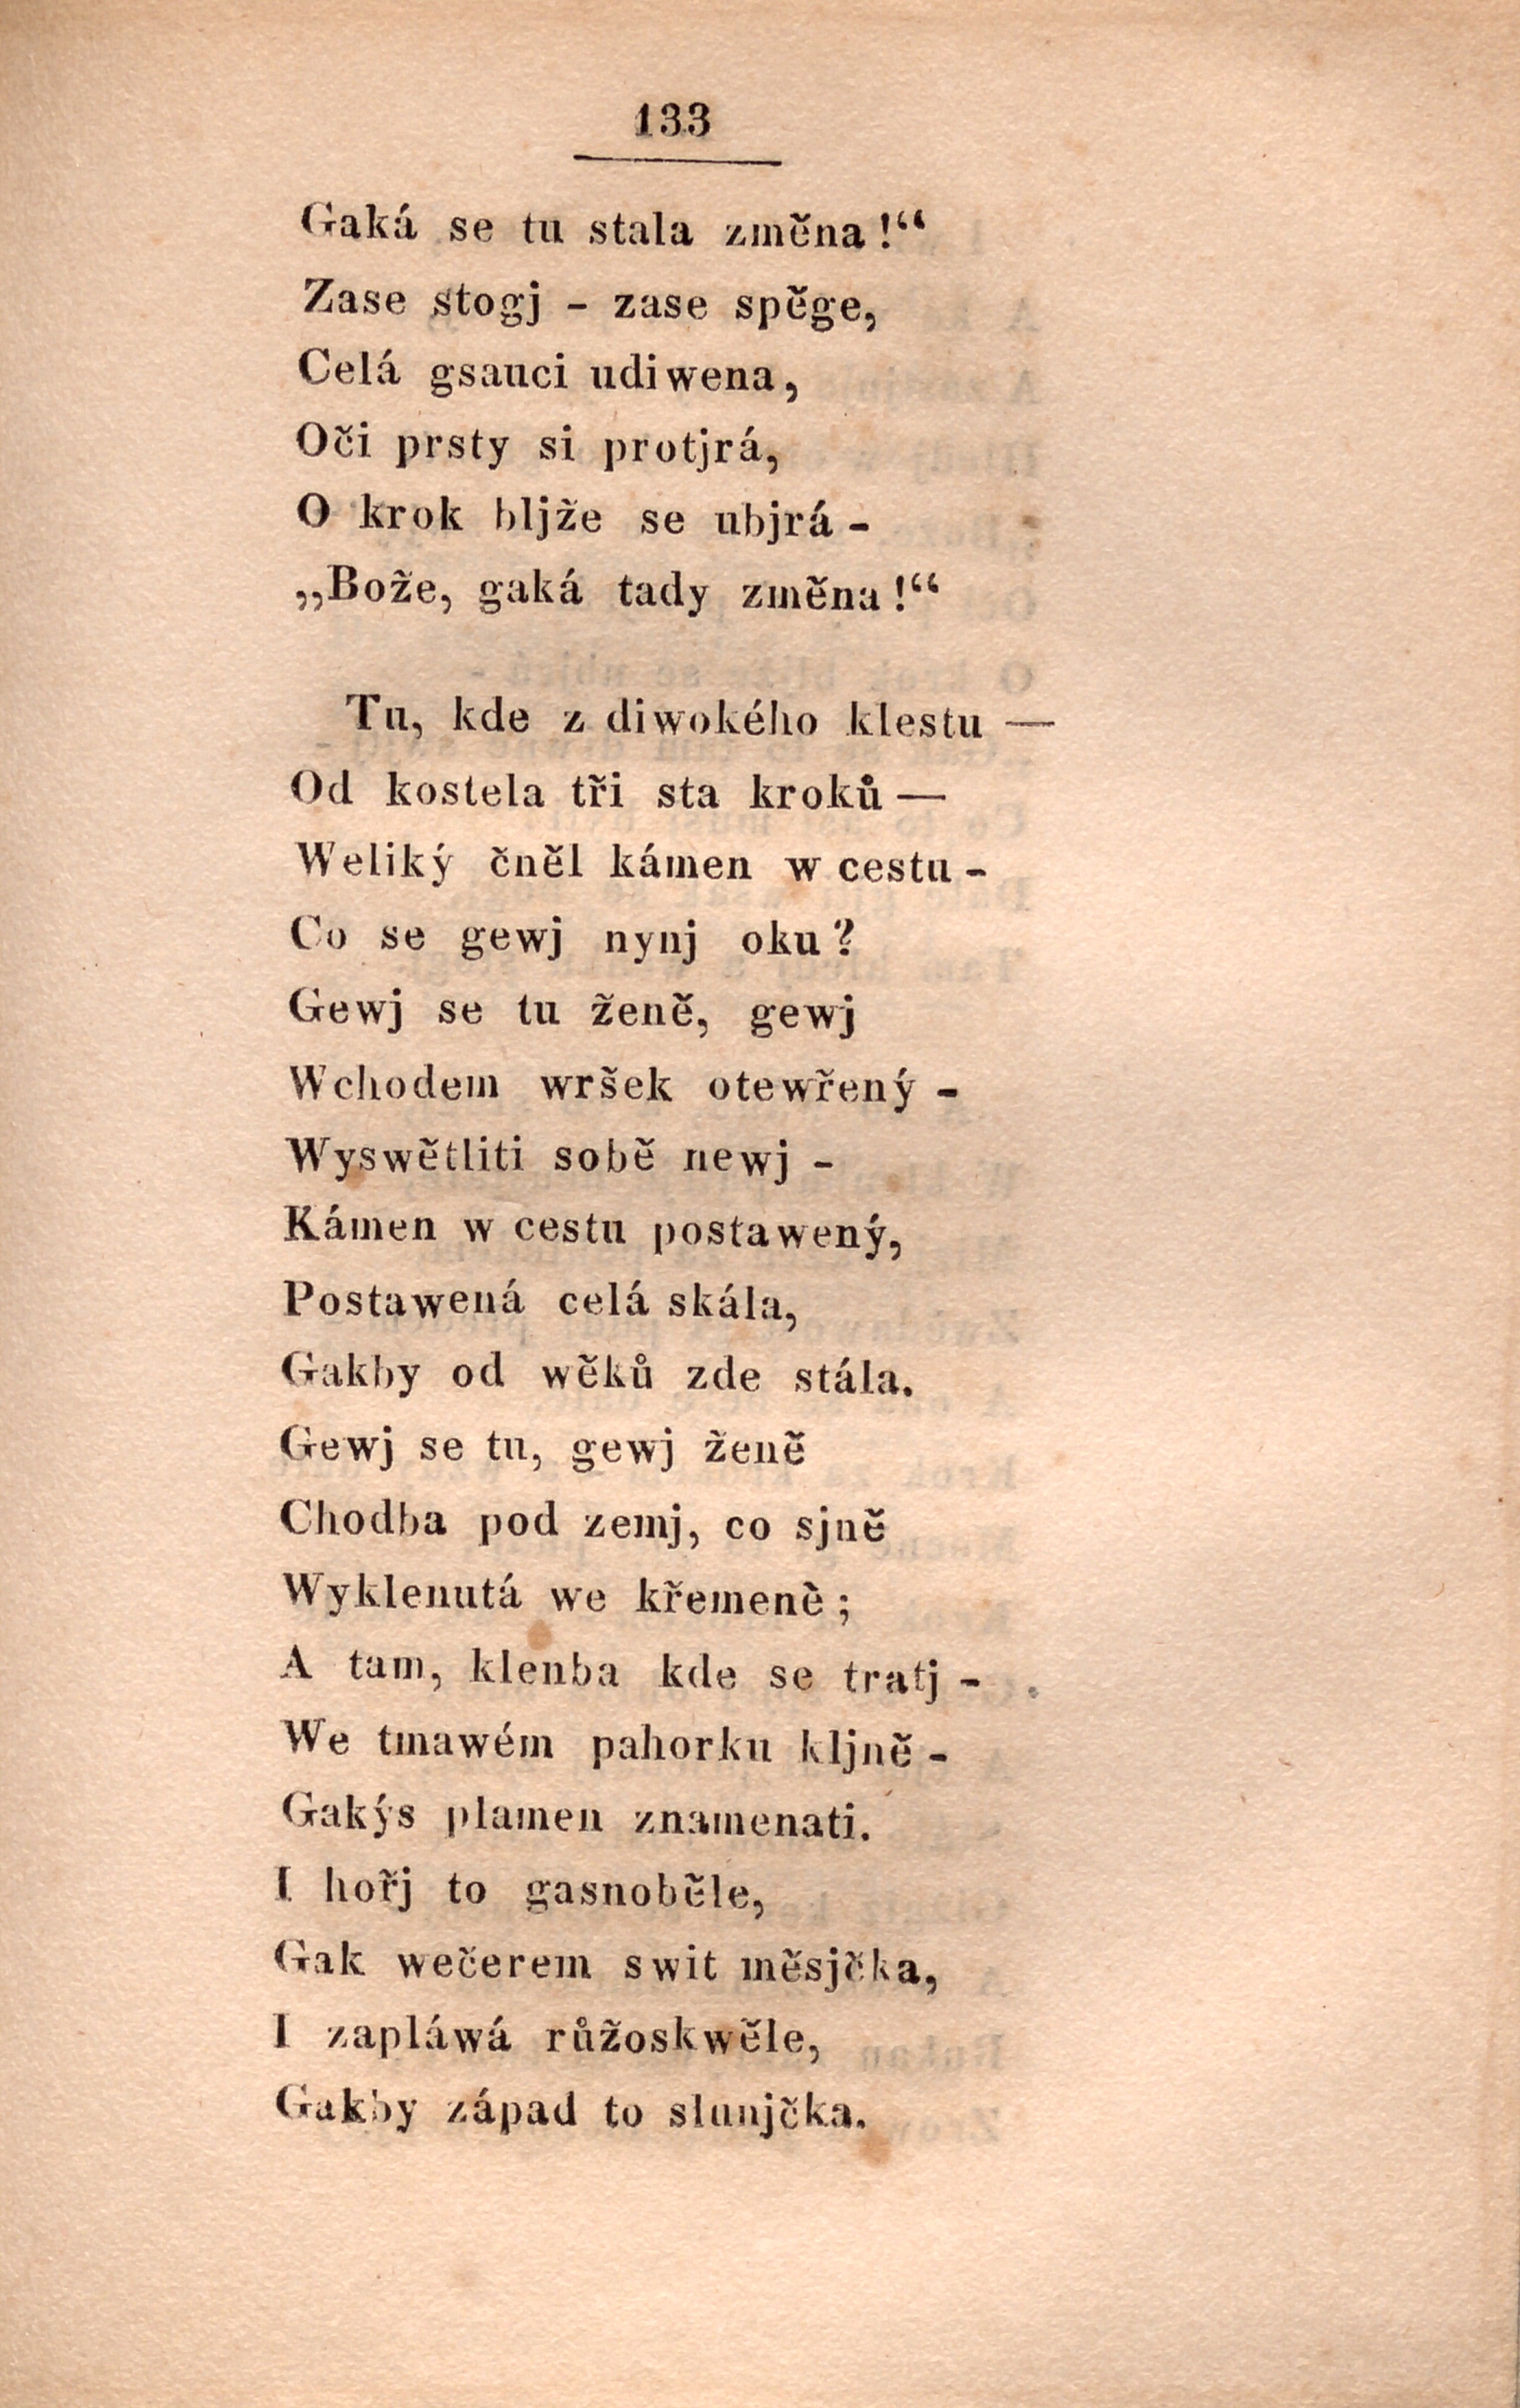 133
Gaká se tu stala změna!“
Zase stogj - zase spěge,
Celá gsauci udiwena,
Oči prsty si protjrá,
O krok bljže se ubjrá -
„Bože, gaká tady změna!“
Tu, kde z diwokého klestu —
Od kostela tři sta kroků —
Weliký čněl kámen w cestu -
Co se gewj nynj oku?
Gewj se tu ženě, gewj
Wchodem wršek otewřený -
Wyswětliti sobě newj -
Kámen w cestu postawený,
Postawená celá skála,
Gakby od wěků zde stála.
Gewj se tu, gewj ženě
Chodba pod zemj, co sjně
Wyklenutá we křemeně;
A tam, klenba kde se tratj -
We tmawém pahorku kljně -
Gakýs plamen znamenati.
I hořj to gasnoběle,
Gak wečerem swit měsjčka,
I zapláwá růžoskwěle,
Gakby západ to slunjčka.